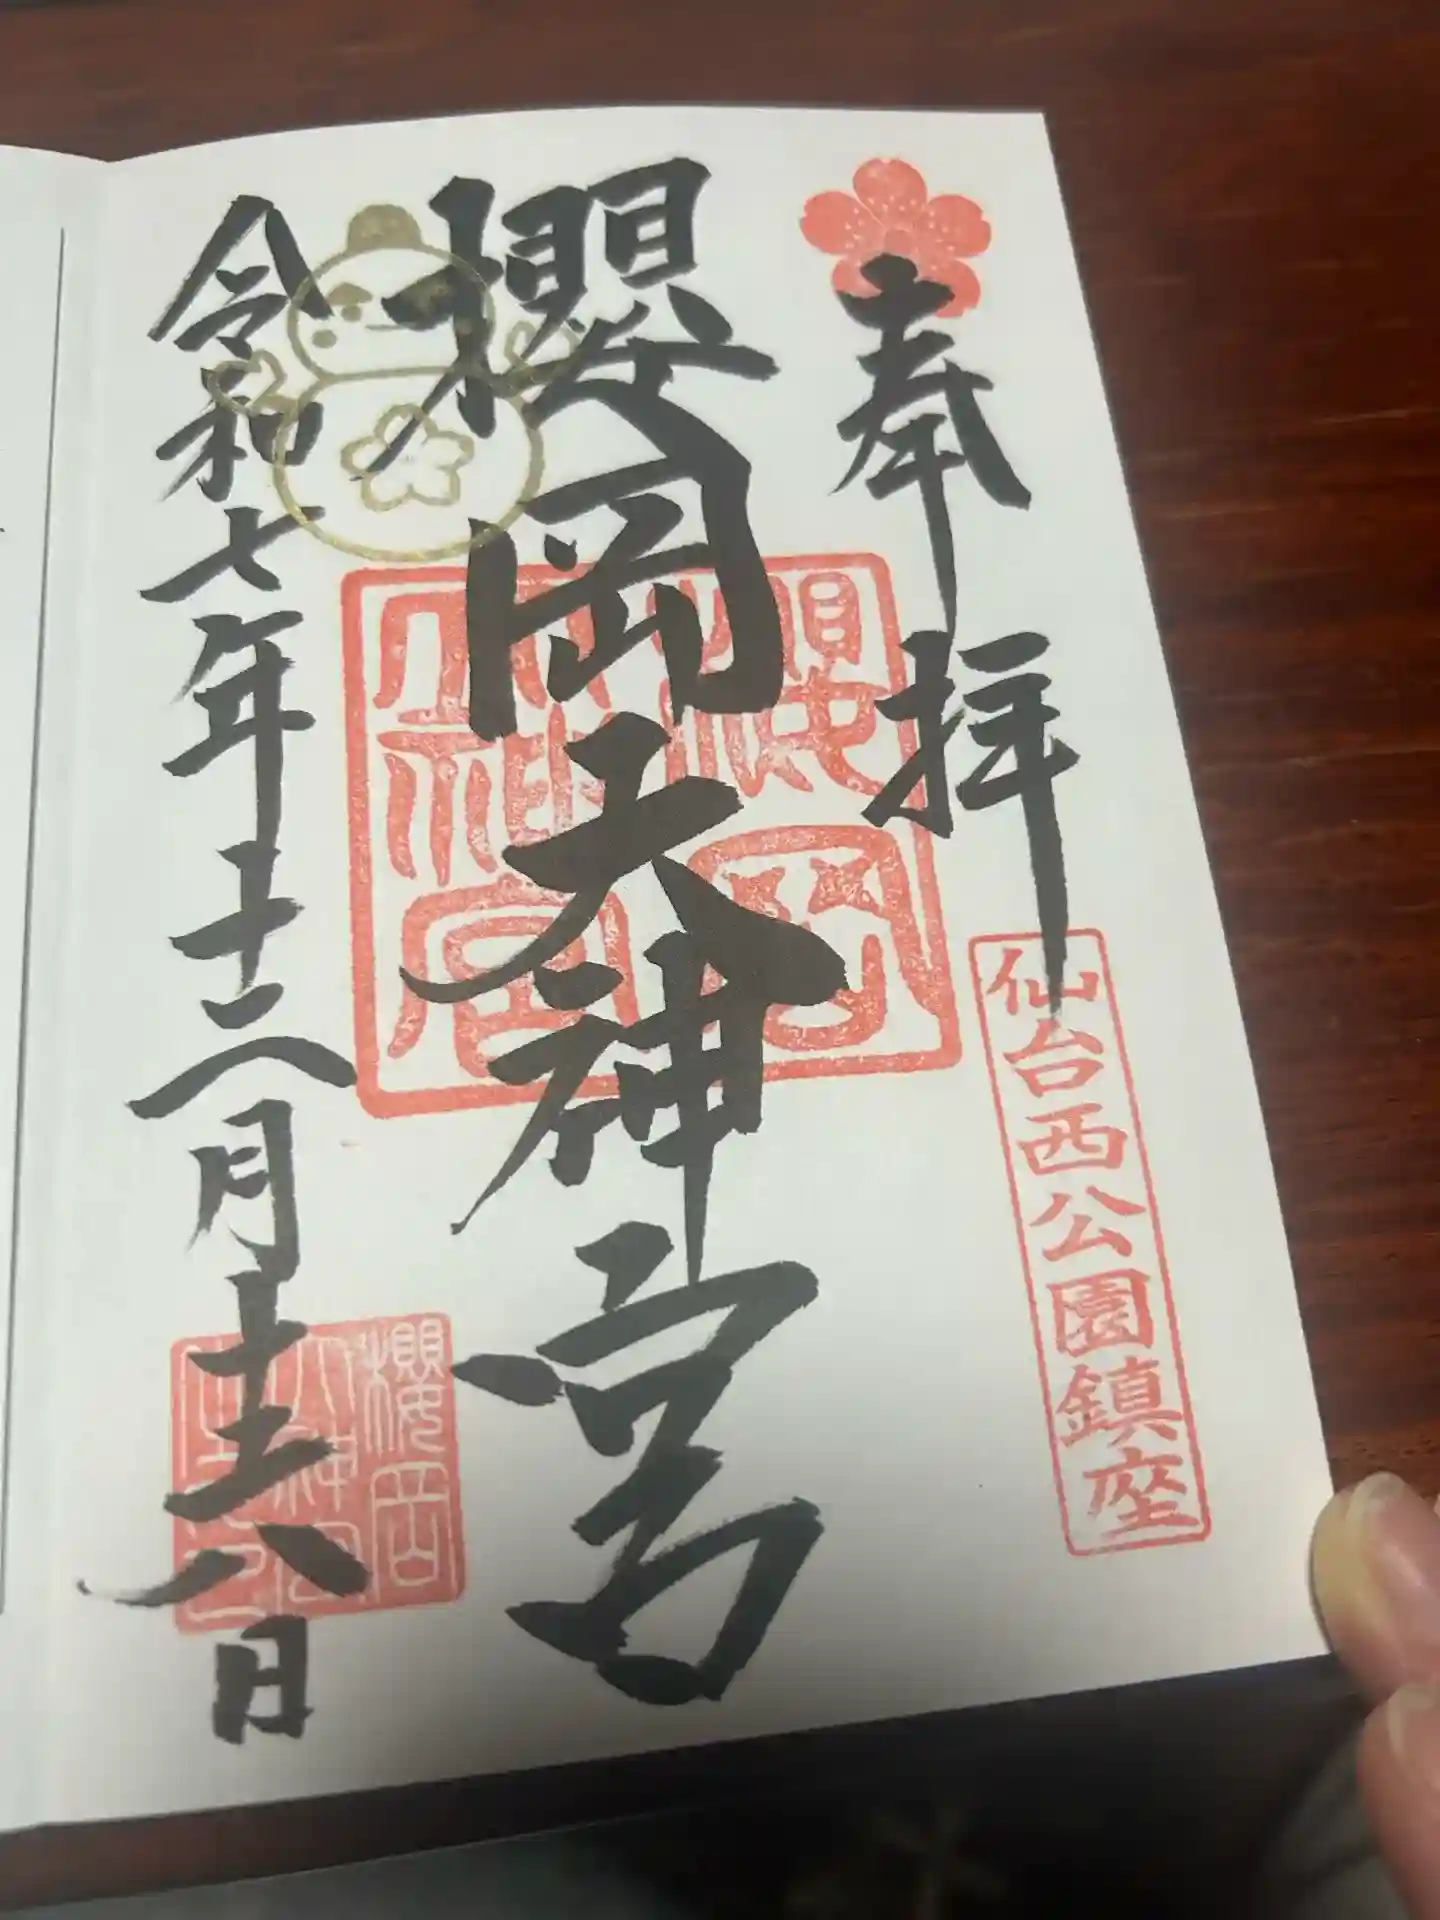 奉拝
仙台西公園鎮座
櫻岡大神宮
櫻岡
大神宮
令和七年十二月 八日
櫻岡
大神宮